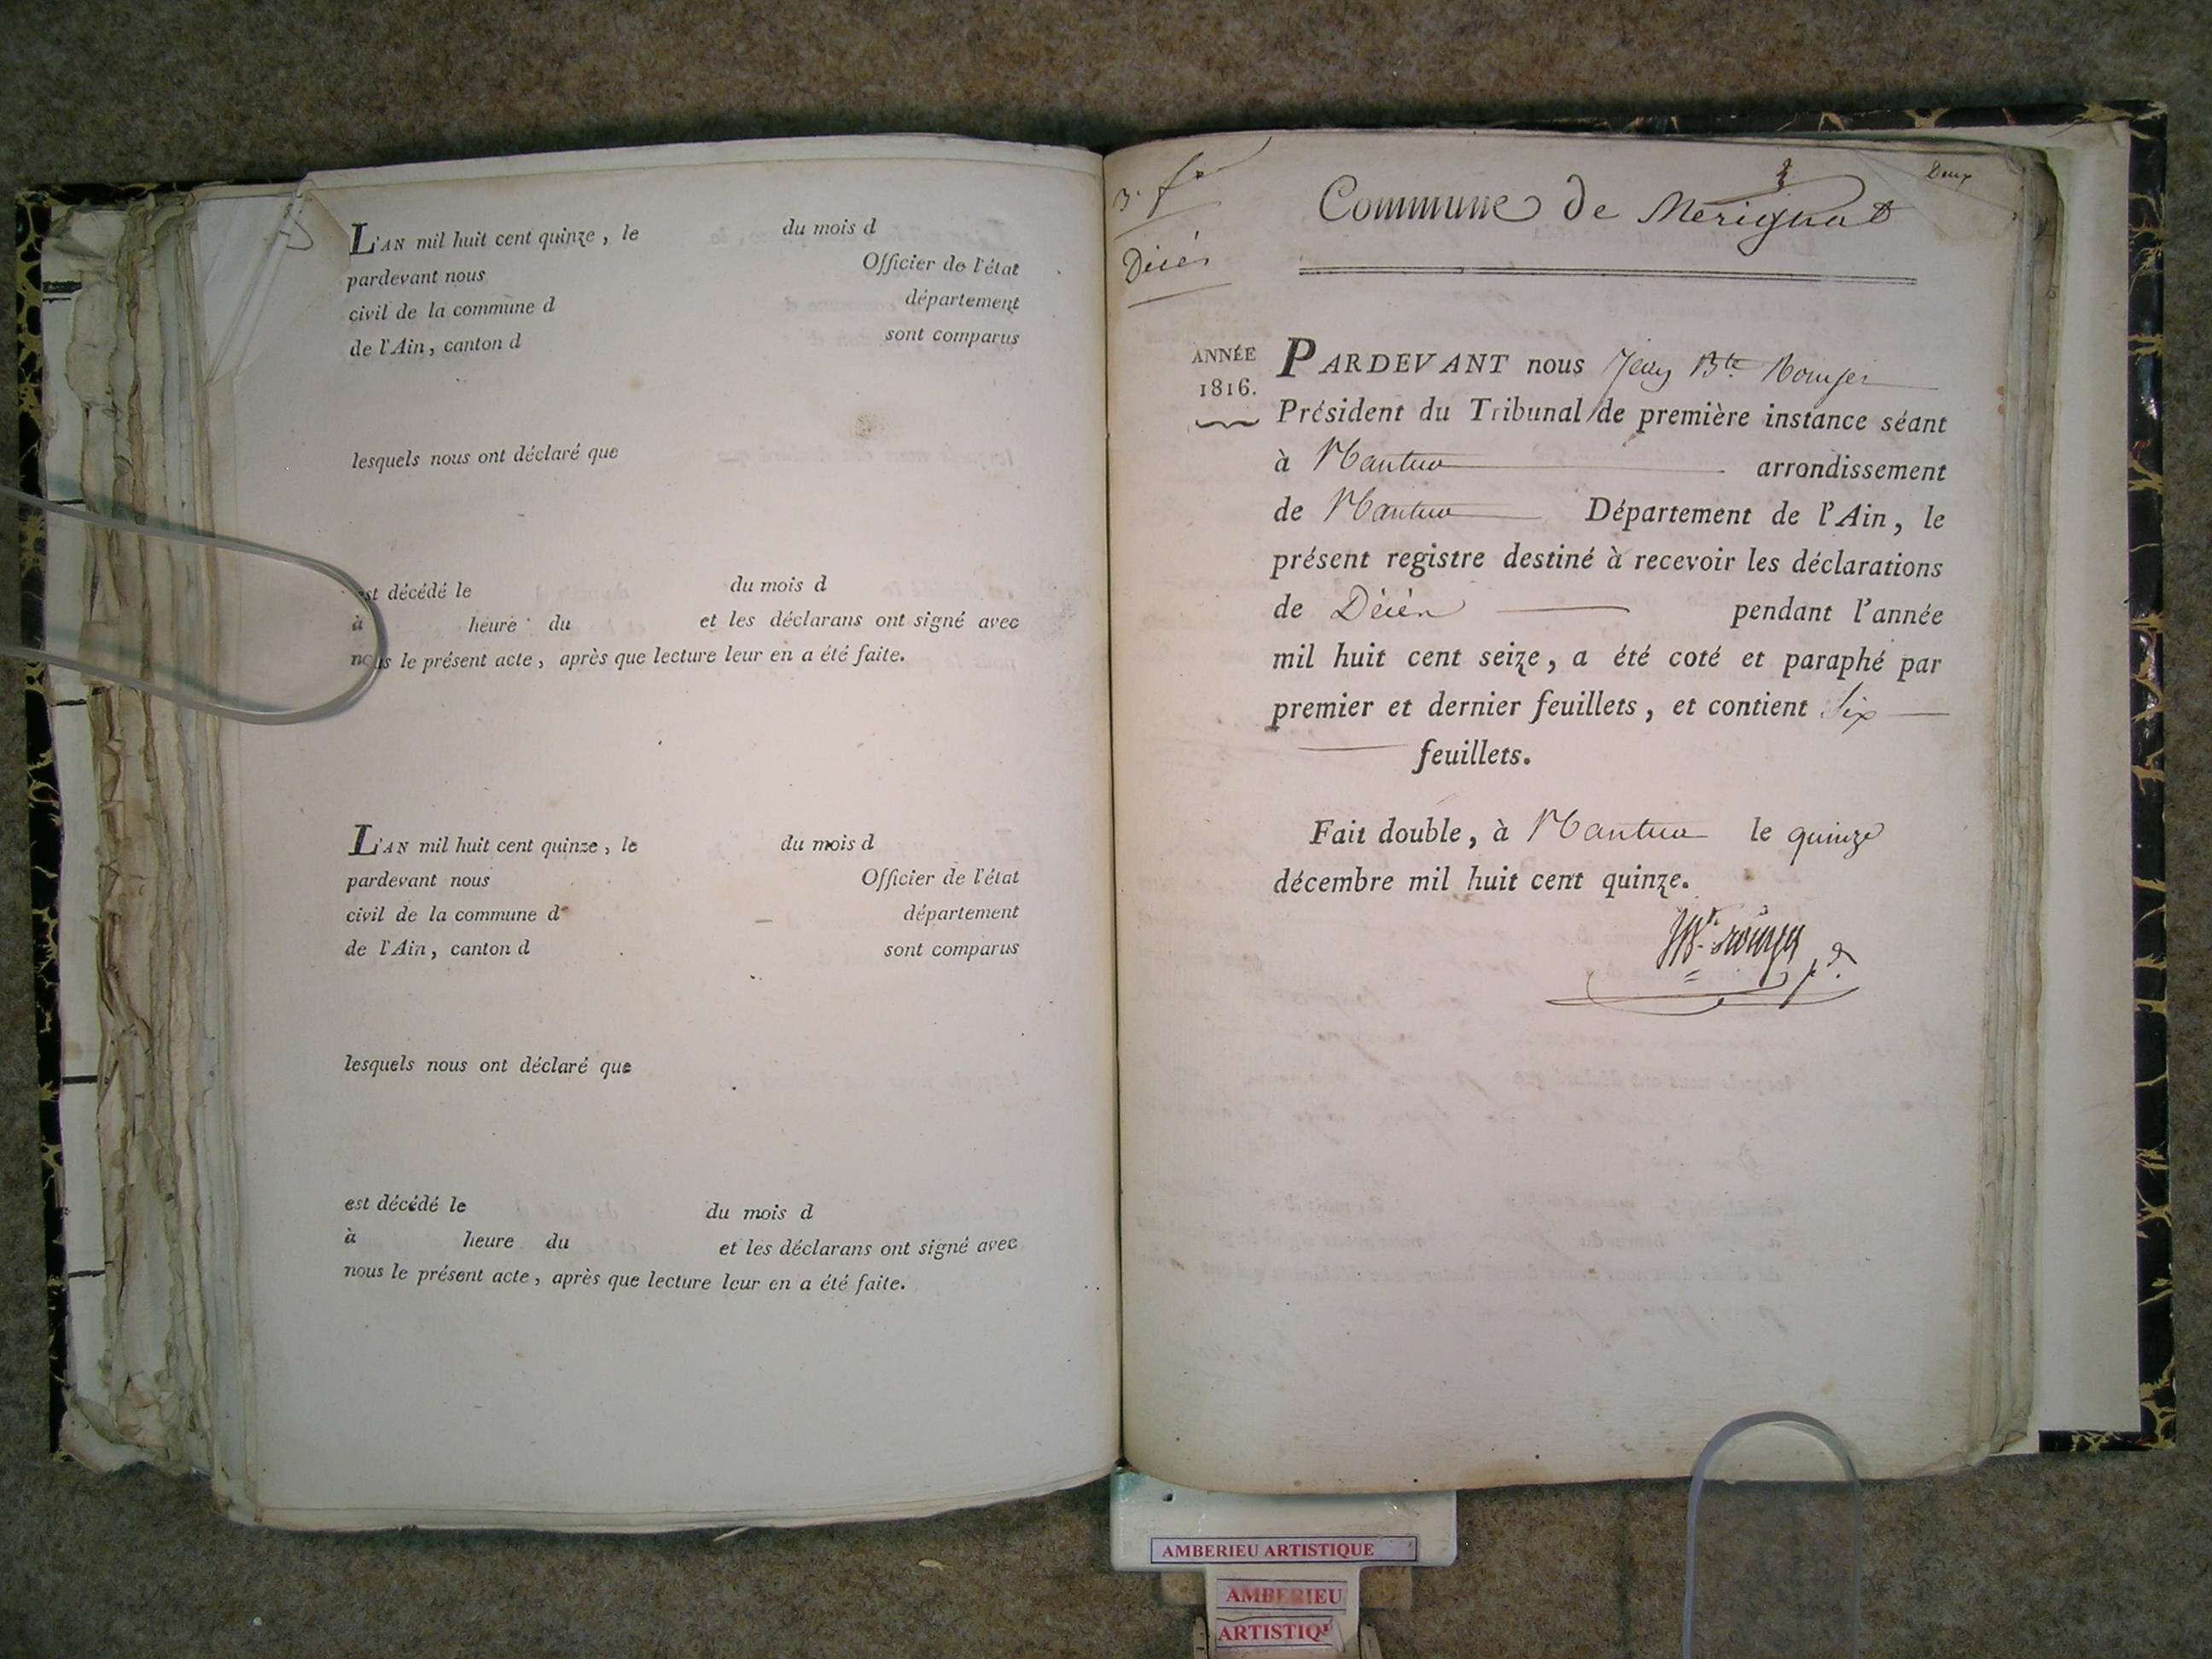 L'AN mil huit cent quinze, le du mois d
pardevant nous Officier de l'état
civil de la commune d département
de l'Ain, canton d sont comparus
lesquels nous ont déclaré que
est décédé le du mois d
à heure du et les déclarans ont signé avec
nous le présent acte, après que lecture leur en a été faite.
L'AN mil huit cent quinze, le du mois d
pardevant nous Officier de l'état
civil de la commune d département
de l'Ain, canton d sont comparus
lesquels nous ont déclaré que
est décédé le du mois d
à heure du et les déclarans ont signé avec
nous le présent acte, après que lecture leur en a été faite.
Deux
Commune de Merignat
Décès
ANNÉE
1816.
PARDEVANT nous Jean Bte
Président du Tribunal de première instance séant
à Nantua arrondissement
de Nantua Département de l'Ain, le
présent registre destiné à recevoir les déclarations
de Décès pendant l'année
mil huit cent seize, a été coté et paraphé par
premier et dernier feuillets, et contient Six
feuillets.
Fait double, à Nantua le quinze
décembre mil huit cent quinze.
AMBERIEU ARTISTIQUE
AMBERIEU
ARTISTIQ